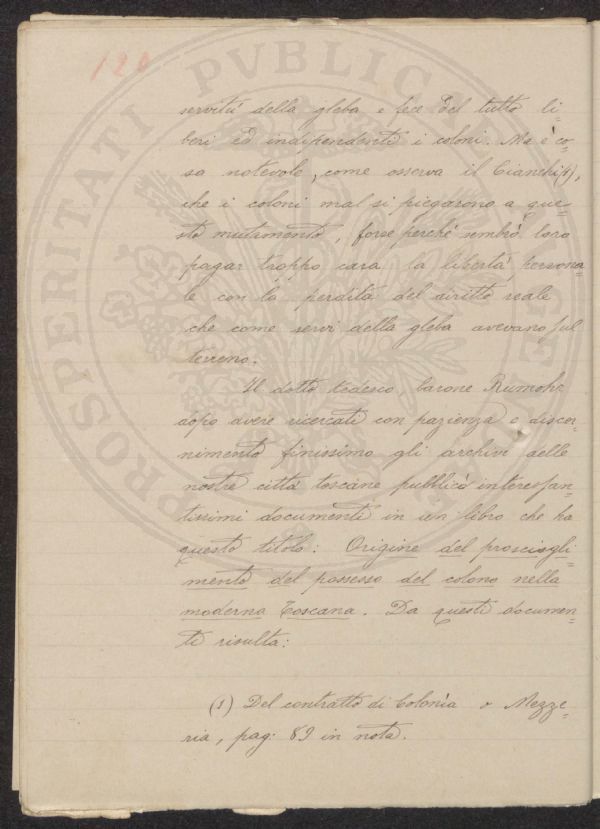 120
PROSPERITATI PVBLICAE
servitù della gleba e fece del tutto li=
beri ed indipendenti i coloni. Ma è co=
sa notevole, come osserva il Bianchi(1),
che i coloni mal si piegarono a que=
sto mutamento, forse perchè sembrò loro
pagar troppo cara la libertà persona=
le con la perdita del diritto reale
che come servi della gleba avevano sul
terreno.
Il dotto tedesco, barone Rumohr
dopo avere ricercati con pazienza e discer=
nimento finissimo gli archivi delle
nostre città toscane pubblicò interessan=
tissimi documenti in un libro che ha
questo titolo: Origine del prosciogli=
mento del possesso del colono nella
moderna Toscana. Da questi documen=
ti risulta:
(1) Del contratto di Colonìa o Mezze=
ria, pag: 89 in nota.